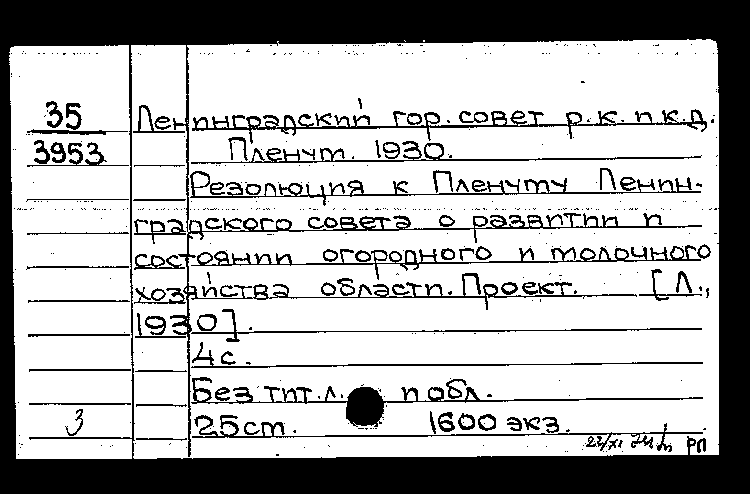 35 Ленинградский гор. совет р.к. и к.д.
3953 Пленум. 1930.
Резолюция к Пленуму Ленин-
градского совета о развитии и
состоянии огородного и молочного
хозяйства области. Проект. [Л.,
1930].
4 с.
Без тит. л. и обл.
3 25 см. 1600 экз.
РП